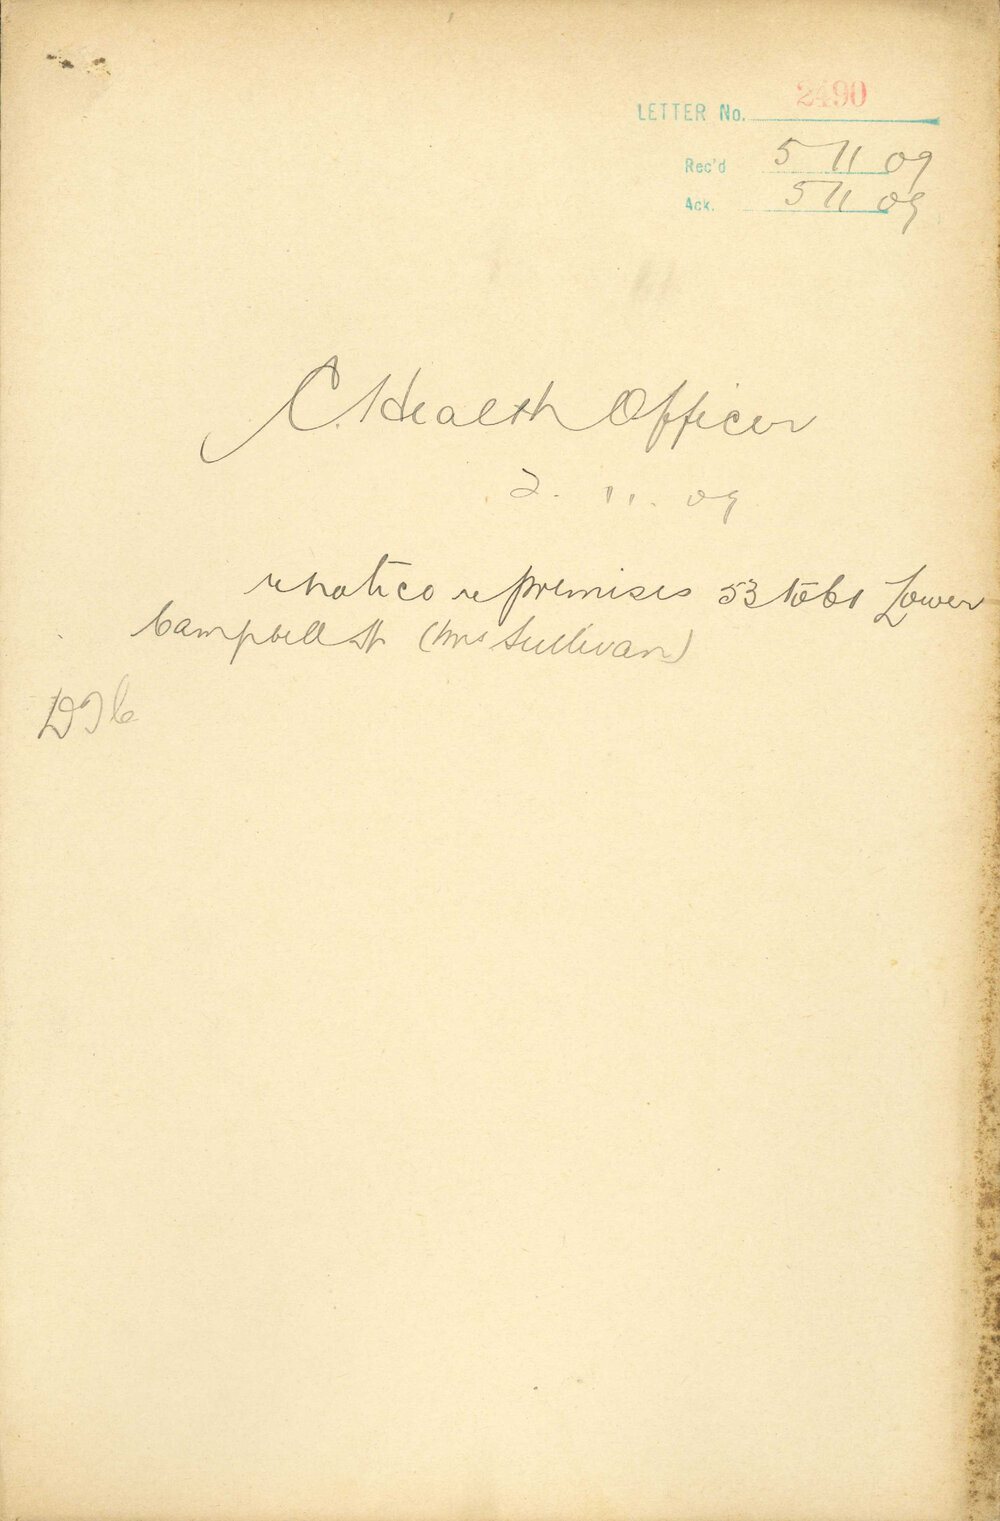 LETTER No. 2490
Rec'd 5 11 09
Ack. 5 11 09
C. Health Officer
2. 11. 09
re notice re premises 53 to 61 Lower
Campbell St (Mrs Sullivan)